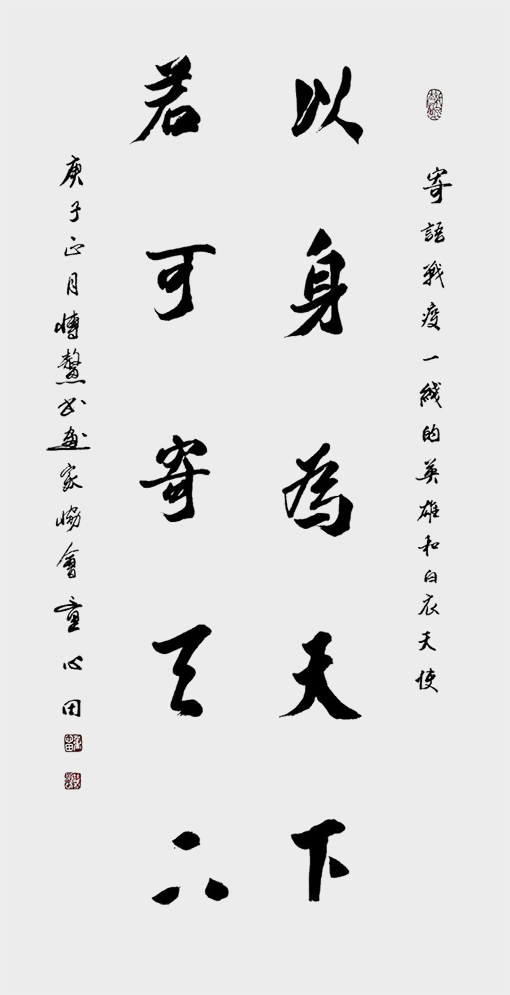 寄語戰疫一綫的英雄和白衣天使
以身為天下
若可寄天下
庚子正月博鰲书畫家協會童心田